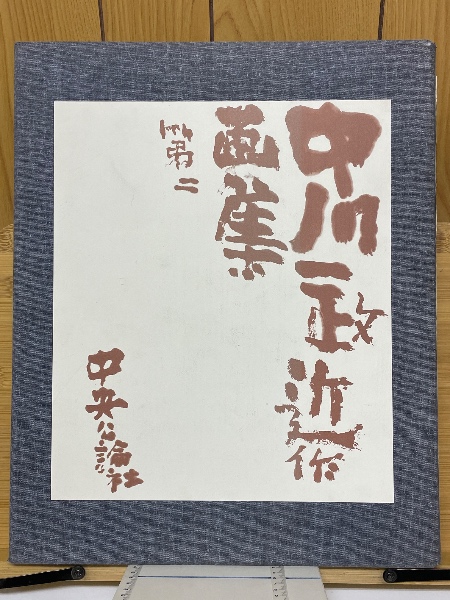 中川一政近作
画集
第二
中央公論社